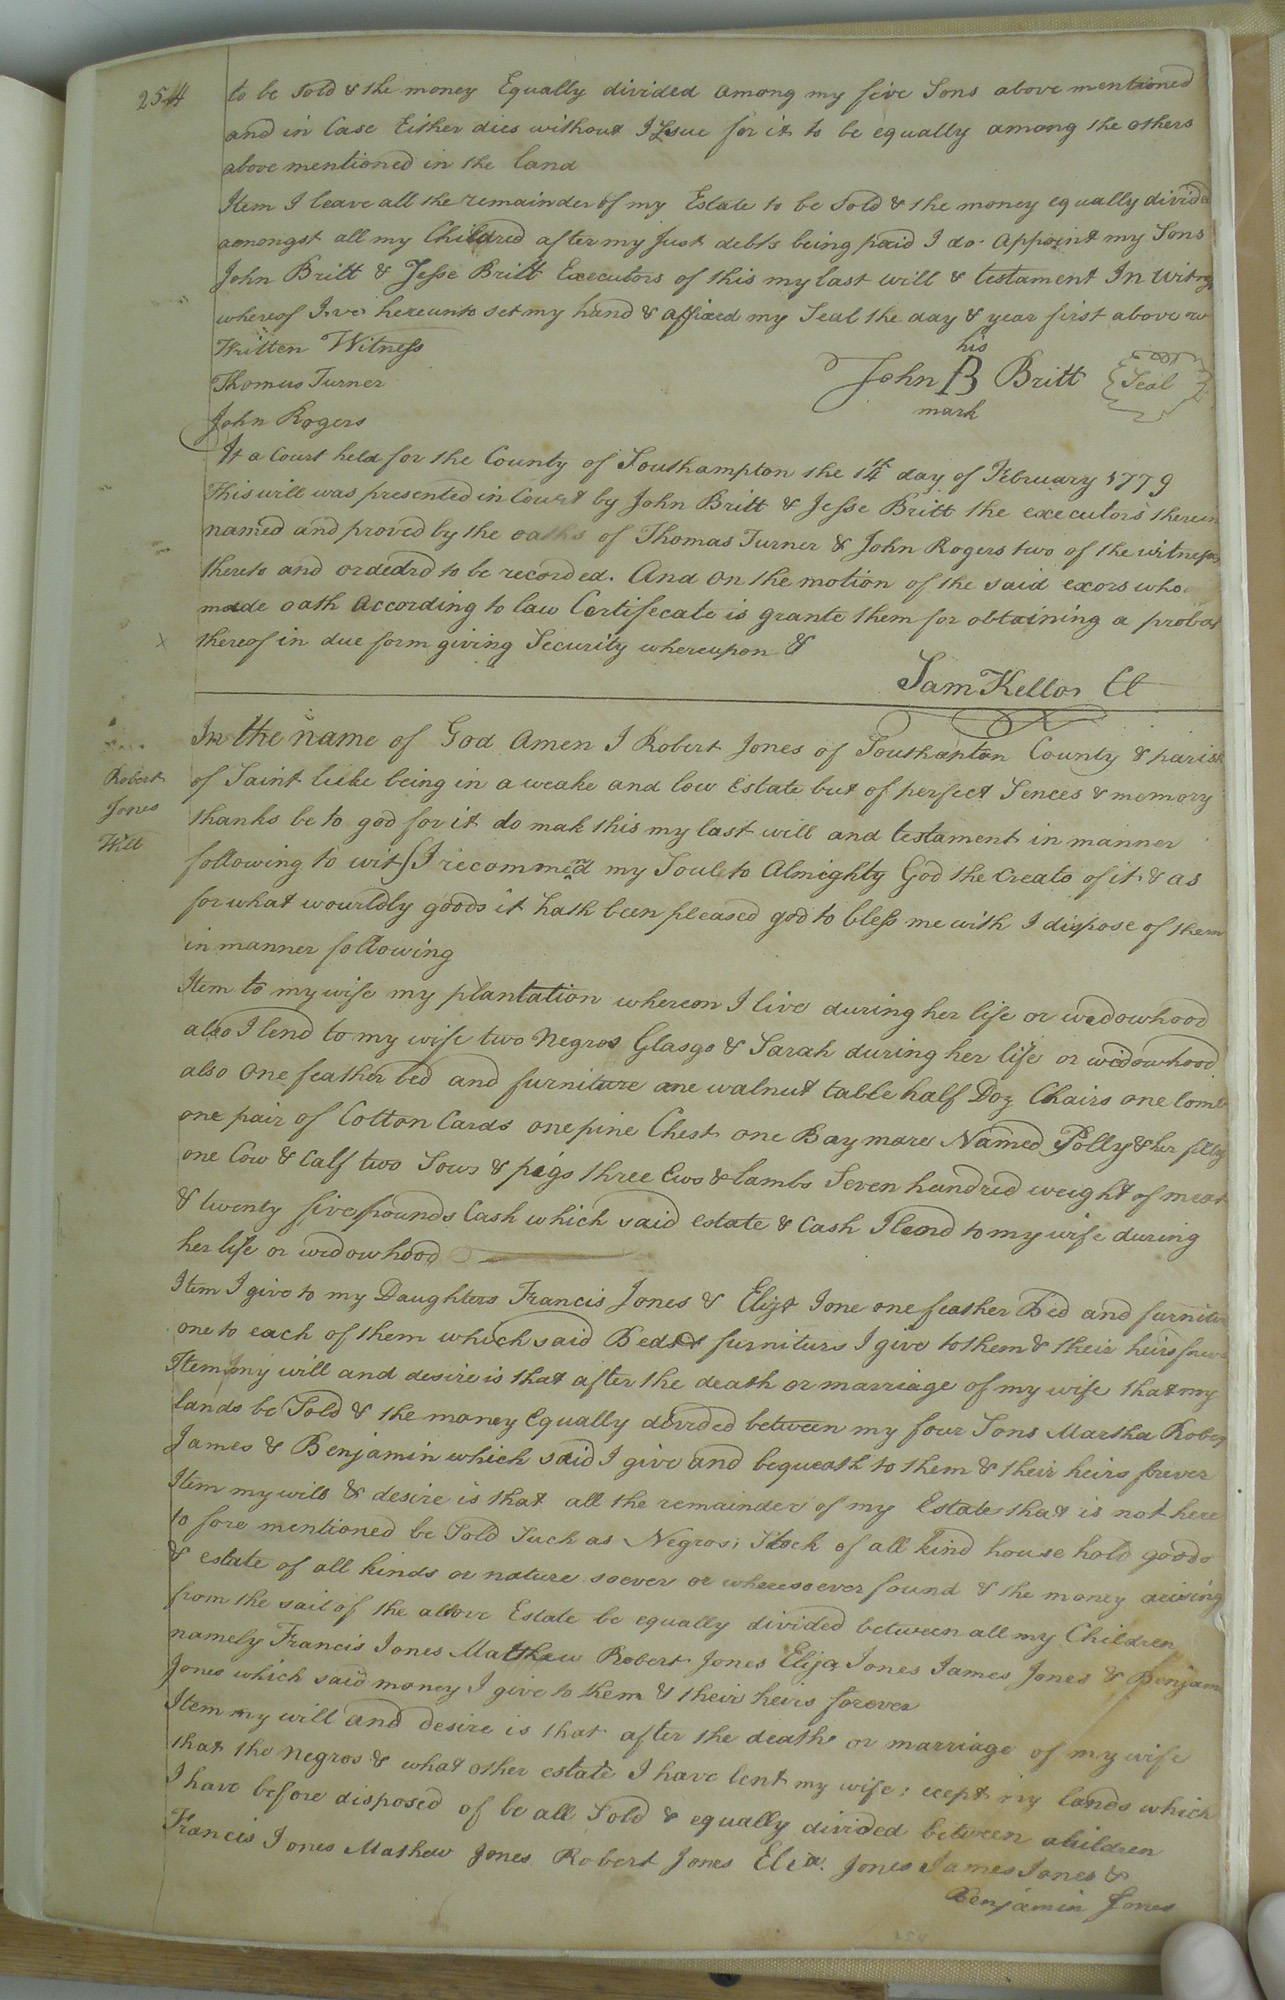 254
to be Sold & the money Equally divided among my five Sons above mentioned
and in Case Either dies without Issue for it to be equally among the others
above mentioned in the land
Item I leave all the remainder of my Estate to be Sold & the money equally divided
amongst all my Childred after my Just debts being paid I do appoint my Sons
John Britt & Jesse Britt Executors of this my last will & testament In Witness
whereof I've hereunto set my hand & affixed my Seal the day & year first above w
Written Witness
his
Thomas Turner
John B Britt Seal
mark
John Rogers
At a Court held for the County of Southampton the 14th day of February 1779
This will was presented in Court by John Britt & Jesse Britt the executors therein
named and proved by the oaths of Thomas Turner & John Rogers two of the witnesses
thereto and ordedrd to be recorded. And on the motion of the said exors who
made oath according to law Certifecate is grante them for obtaining a probat
thereof in due form giving Security whereupon &
Sam Kello Cl
Robert
Jones
Will
In the name of God Amen I Robert Jones of Southapton County & parish
of Saint luke being in a weake and low Estate but of perfect Sences & memory
thanks be to god for it do mak this my last will and testament in manner
following to wit I recommend my Soule to Almighty God the Creato of it & as
for what wourldly goods it hath been pleased god to bless me with I dispose of them
in manner following
Item to my wife my plantation whereon I live during her life or wedowhood
also I lend to my wife two Negros Glasgo & Sarah during her life or widowhood
also One feather bed and furniture one walnut table half Doz Chairs one
one pair of Cotton Cards one pine Chest one Bay mare Named Polly & her
one Cow & Calf two Sows & pigs three Ews & lambs Seven hundred weight of meat
& twenty five pounds Cash which said estate & Cash I lend to my wife during
her life or widowhood
Item I give to my Daughters Francis Jones & Eliza Jone one feather Bed and furniture
one to each of them which said Beds & furniturs I give to them & their heirs
Item my will and desire is that after the death or marriage of my wife that my
lands be Sold & the money Equally divided between my four Sons Martha Robert
James & Benjamin which said I give and bequeath to them & their heirs forever
Item my will & desire is that all the remainder of my Estate that is not here
to fore mentioned be Sold Such as Negros; Stock of all kind house hold goods
& estate of all kinds or nature soever or wheresoever found & the money arising
from the sail of the above Estate be equally divided between all my Children
namely Francis Jones Matthew Robert Jones Elija Jones James Jones & Benjamin
Jones which said money I give to them & their heirs forever
Item my will and desire is that after the death or marriage of my wife
that the negros & what other estate I have lent my wife: ecept my lands which
I have before disposed of be all Sold & equally divided between children
Francis Jones Mathew Jones Robert Jones Eliza Jones James Jones &
Benjamin Jones